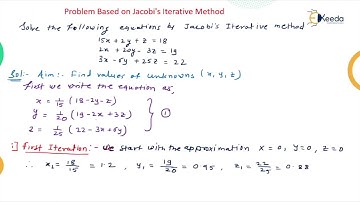 Problem Based on Jacobi's Iterative Method
Keeda
Solve the following equations by Jacobi's Iterative method
15x + 2y + z = 18
2x + 20y - 3z = 19
3x - 6y + 25z = 22
Sol:- Aim:- Find values of unknowns (x, y, z)
first we write the equation as
x = 1/15 (18 - 2y - z)
y = 1/20 (19 - 2x + 3z) ①
z = 1/25 (22 - 3x + 6y)
i] First Iteration:- We start with the approximation x = 0, y = 0, z = 0
∴ x₁ = 18/15 = 1.2, y₁ = 19/20 = 0.95, z₁ = 22/25 = 0.88